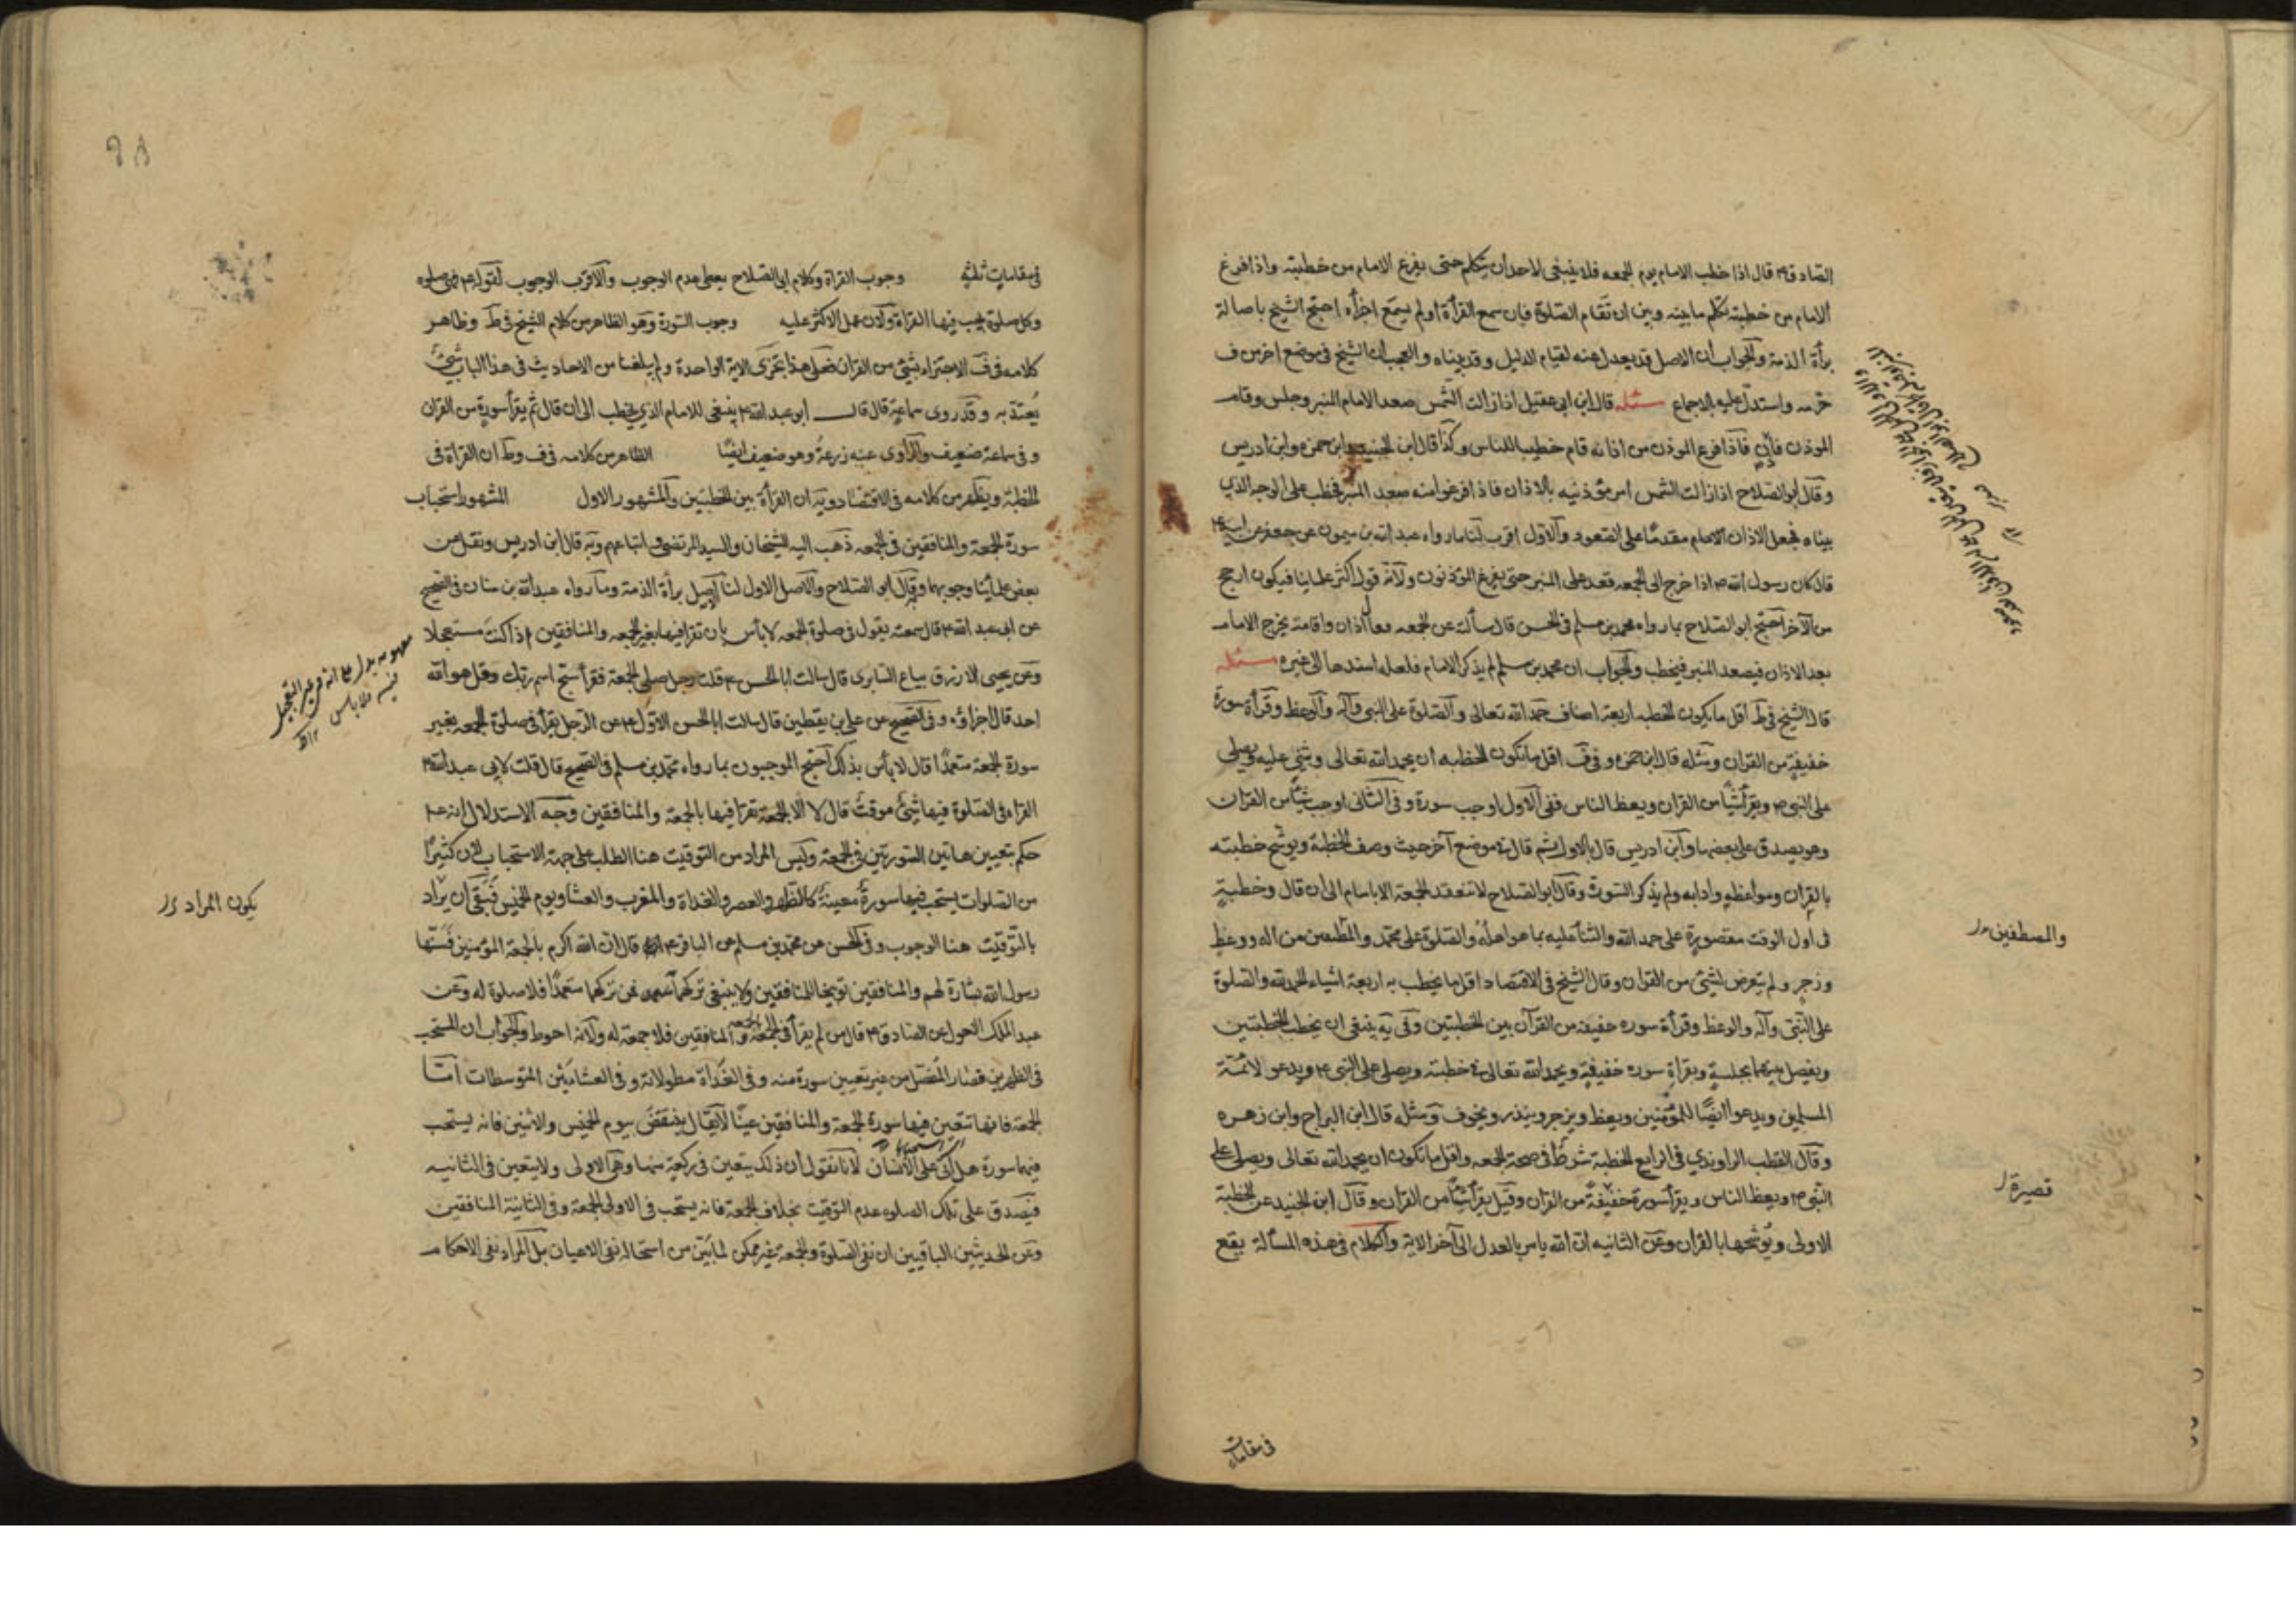 الصادق ع قال اذا خطب الامام يوم الجمعه فلا ينبغى لاحد ان يتكلم حتى يفرغ الامام من خطبته واذا فرغ
الامام من خطبته تكلم ما بينه وبين ان تقام الصلوة فان سمع القرأة او لم يسمع اجزأه احتج الشيخ باصالة
برأة الذمة والجواب ان الاصل قد يعدل عنه لقيام الدليل وقد بيناه والعجب ان الشيخ فى موضع اخر من ف
حرمه واستدل عليه بالاجماع مسئله قال ابن ابى عقيل اذا زالت الشمس صعد الامام المنبر وجلس وقام
الموذن فاذن فاذا فرغ الموذن من اذانه قام خطيبا للناس وكذا قال ابن الجنيد وابن حمزه وابن ادريس
وقال ابو الصلاح اذا زالت الشمس امر مؤذنيه بالاذان فاذا فرغوا منه صعد المنبر فخطب على الوجه الذي
بيناه فجعل الاذان الامام مقدمًا على القعود والاول اقرب لنا ما رواه عبد الله بن ميمون عن جعفر عن ابيه ع
قال كان رسول الله ص اذا خرج الى الجمعه قعد على المنبر حتى يفرغ المؤذنون ولانه قول اكثر علماينا فيكون ارجح
من الآخر احتج ابو الصلاح بما رواه محمد بن مسلم فى الحسن قال سألته عن الجمعه فقال اذان واقامة يخرج الامام
بعد الاذان فيصعد المنبر فيخطب والجواب ان محمد بن مسلم لم يذكر الامام فلعله اسندها الى غيره مسئله
قال الشيخ فى ط اقل ما يكون الخطبه اربعة اصناف حمد الله تعالى والصلوة على النبى وآله والوعظ وقرأة سورة
خفيفة من القران ومثله قال ابن حمزه و فى ف اقل ما تكون الخطبه ان يحمد الله تعالى ويثنى عليه ويصلى
على النبى ص ويقرأ شيًا من القران ويعظ الناس ففى الاول اوجب سورة و فى الثانى اوجب شيًا من القران
وهو يصدق على بعضها وابن ادريس قال بالاول ثم قال فى موضع آخر حيث وصف الخطبة ويوشح خطبته
بالقران ومواعظه وادابه ولم يذكر السورة وقال ابو الصلاح لا تنعقد الجمعة الا بامام الى ان قال وخطبة
فى اول الوقت مقصورة على حمد الله والثنأ عليه بما هو اهله والصلوة على محمد والمطفين من اله ووعظ
والمصطفين
وزجر ولم يتعرض لشئ من القران وقال الشيخ فى الاقتصاد اقل ما يخطب به اربعة اشياء الحمد لله والصلوة
على النبى وآله والوعظ وقرأة سوره خفيفه من القرآن بين الخطبتين وفى يه ينبغى ان يخطب الخطبتين
ويفصل بينهما بجلسة وبقراة سوره خفيفة ويحمد الله تعالى فى خطبته ويصلى على النبى ص ويدعو لائمة
المسلمين ويدعو ايضًا للمؤمنين ويعظ ويزجر وينذر ويخوف ومثله قال ابن البراج وابن زهره
وقال القطب الراوندي فى الرابع الخطبة شرط فى صحة الجمعه واقل ما تكون ان يحمد الله تعالى ويصلى على
النبى ص ويعظ الناس ويقرأ سورة خفيفة من القران وقيل يقرأ شيًا من القران وقال ابن الجنيد عن الخطبة
قصيرة
الاولى ويوشحها بالقران وعن الثانيه ان الله يامر بالعدل الى آخر الاية والكلام فى هذه المسألة يقع
فى مقامات
فى مقامات ثلثه وجوب القراة وكلام ابى الصلاح يعطى عدم الوجوب والاقرب الوجوب لقوله ع هى صلوه
وكل صلوة يجب فيها القراة ولان عمل الاكثر عليه وجوب السورة وهو الظاهر من كلام الشيخ فى ط وظاهر
كلامه فى ف الاجتزاء بشئ من القران فعلى هذا تجزى الاية الواحدة ولم يبلغنا من الاحاديث فى هذا الباب شئ
يعتد به وقد روى سماعة قال قال ابو عبد الله ع ينبغى للامام الذي يخطب الى ان قال ثم يقرأ سورة من القران
وفى سماعة ضعيف والراوى عنه زرعة وهو ضعيف ايضًا الظاهر من كلامه فى ف وط ان القراة فى
الخطبة ويظهر من كلامه فى الاقتصاد ويه ان القرأة بين الخطبتين والمشهور الاول المشهور استحباب
سورة الجمعة والمنافقين فى الجمعه ذهب اليه الشيخان والسيد المرتضى واتباعهم وبه قال ابن ادريس ونقل عن
بعض علمائنا وجوبهما وقال ابو الصلاح والاصل الاول لنا الاصل برأة الذمة وما رواه عبد الله بن سنان فى الصحيح
عن ابى عبد الله ع قال سمعته يقول فى صلوة الجمعه لا بأس بان تقرا فيها بغير الجمعه والمنافقين اذا كنت مستعجلا
وعن يحيى الازرق بياع السابرى قال سالت ابا الحسن ع قلت رجل صلى الجمعة فقرأ سبح اسم ربك وقل هو الله
احد قال اجزاؤه وفى الصحيح عن على بن يقطين قال سالت ابا الحسن الاول ع عن الرجل يقرأ فى صلوة الجمعه بغير
سورة الجمعة متعمدًا قال لا بأس بذلك احتج الموجبون بما رواه محمد بن مسلم فى الصحيح قال قلت لابى عبد الله ع
القراة فى الصلوة فيها شئ موقت قال لا الا الجمعة تقرا فيها بالجمعة والمنافقين وجه الاستدلال انه ع
حكم بتعيين هاتين السورتين فى الجمعة وليس المراد من التوقيت هنا الطلب على جهة الاستحباب لان كثيرًا
من الصلوات يستحب فيها سورة معينة كالظهر والعصر والغداة والمغرب والعشا ويوم الخميس فبقى ان يراد
يكون المراد
بالتوقيت هنا الوجوب وفى الحسن عن محمد بن مسلم عن الباقر ع قال ان الله اكرم بالجمعة المؤمنين فسنها
رسول الله بشارة لهم والمنافقين توبيخا للمنافقين ولا ينبغى تركهما فمن تركهما متعمدًا فلا صلوة له وعن
عبد الملك الاحول عن الصادق ع قال من لم يقرأ فى الجمعة بالجمعة والمنافقين فلا جمعة له ولانه احوط والجواب ان المستحب
فى الظهرين قصار المفصل من غير تعيين سورة منه وفى الغداة مطولاته وفى العشائين المتوسطات اما
الجمعة فانها تتعين فيها سورة الجمعة والمنافقين عينًا لا يقال ينتقض بيوم الخميس والاثنين فانه يستحب
فيهما سورة هل اتى على الانسان لانا نقول ان ذلك يتعين فى ركعة منهما وهى الاولى ولا يتعين فى الثانيه
فيصدق على تلك الصلوه عدم التوقيت بخلاف الجمعة فانه يستحب فى الاولى الجمعة وفى الثانية المنافقين
وعن الحديثين الباقيين ان نفى الصلوة والجمعة غير ممكن لما بين من استحالة نفى الاعيان بل المراد نفى الاحكام